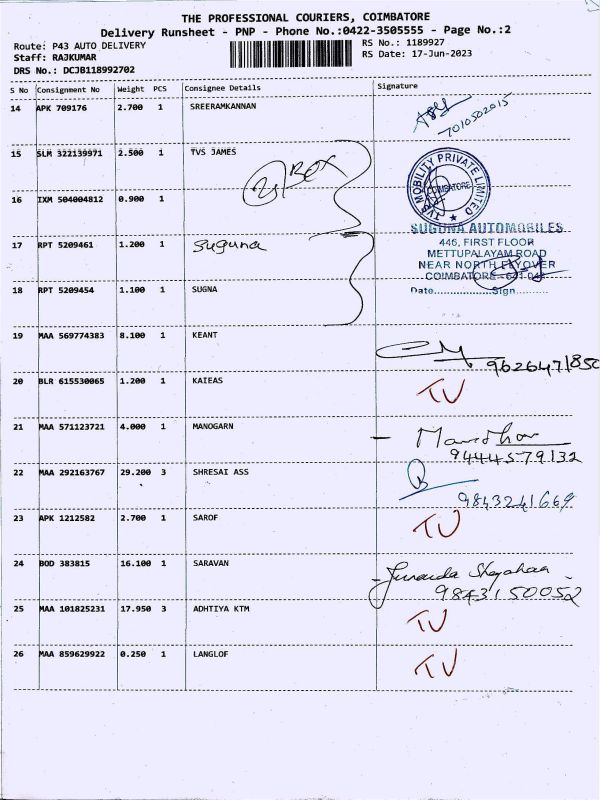 THE PROFESSIONAL COURIERS, COIMBATORE
Delivery Runsheet - PNP - Phone No.:0422-3505555 - Page No.:2
Route: P43 AUTO DELIVERY
RS No.: 1189927
Staff: RAJKUMAR
RS Date: 17-Jun-2023
DRS No.: DCJB118992702
S No Consignment No Weight PCS Consignee Details Signature
14 APK 709176 2.700 1 SREERAMKANNAN
7010502015
15 SLM 322139971 2.500 1 TVS JAMES
BOX
TVS MOBILITY PRIVATE LIMITED
COIMBATORE
16 IXM 504004812 0.900 1
SUGUNA AUTOMOBILES
17 RPT 5209461 1.200 1 Suguna
446, FIRST FLOOR
METTUPALAYAM ROAD
NEAR NORTH FLYOVER
COIMBATORE - 641 043
18 RPT 5209454 1.100 1 SUGNA
Date..................Sign..........
19 MAA 569774383 8.100 1 KEANT
9626471850
20 BLR 615530065 1.200 1 KAIEAS
TU
21 MAA 571123721 4.000 1 MANOGARN
Manodhar
9444579132
22 MAA 292163767 29.200 3 SHRESAI ASS
9843241669
23 APK 1212582 2.700 1 SAROF
TU
24 BOD 383815 16.100 1 SARAVAN
9843150052
25 MAA 101825231 17.950 3 ADHTIYA KTM
TU
26 MAA 859629922 0.250 1 LANGLOF
TU